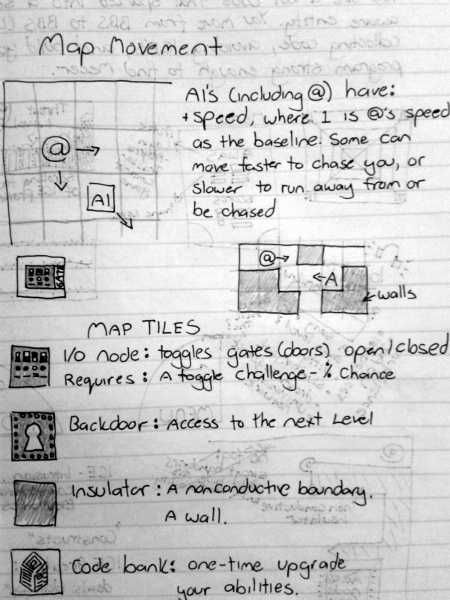 Map Movement
AI's (including @) have:
+speed, where 1 is @'s speed
as the baseline. Some can
move faster to chase you, or
slower to run away from or
be chased
@
AI
GATE
@
A
walls
MAP TILES
I/O node: toggles gates (doors) open/closed
Requires: A toggle challenge - % Chance
Backdoor: Access to the next Level
Insulator: A nonconductive boundary.
A wall.
Code bank: one-time upgrade
your abilities.